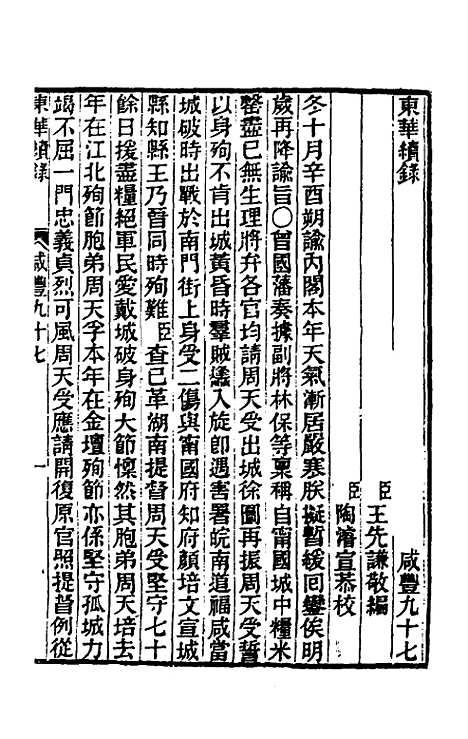 東華續錄 咸豐九十七
臣王先謙敬編
臣陶濬宣恭校
冬十月辛酉朔諭內閣本年天氣漸居嚴寒朕擬暫緩回鑾俟明
歲再降諭旨〇曾國藩奏據副將林保等稟稱自甯國城中糧米
罄盡已無生理將弁各官均請周天受出城徐圖再振周天受誓
以身殉不肯出城黃昏時羣賊蟻入旋即遇害署皖南道福咸當
城破時出戰於南門街上身受二傷與甯國府知府顏培文宣城
縣知縣王乃晉同時殉難臣查已革湖南提督周天受堅守七十
餘日援盡糧絕軍民愛戴城破身殉大節懍然其胞弟周天培去
年在江北殉節胞弟周天孚本年在金壇殉節亦係堅守孤城力
竭不屈一門忠義貞烈可風周天受應請開復原官照提督例從
東華續錄 咸豐九十七 一